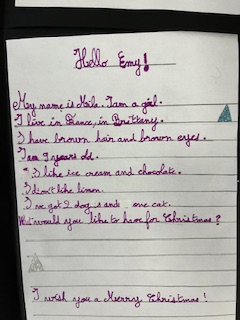 Hello Emy!
My name is Milo. I am a girl.
I live in France, in Brittany.
I have brown hair and brown eyes.
I am 9 years old.
I like ice cream and chocolate.
I don't like limon.
I've got 2 dogs and one cat.
What would you like to have for Christmas?
I wish you a Merry Christmas!